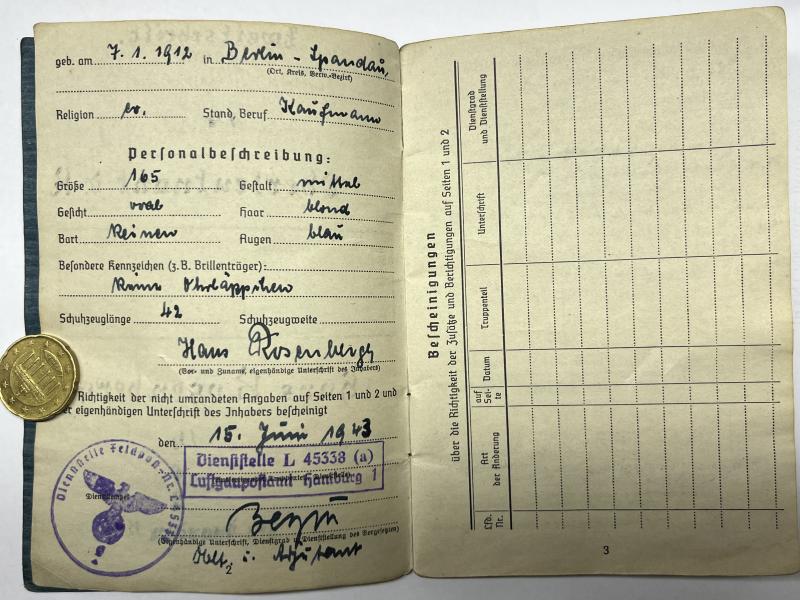 geb. am 7. 1. 1912 in Berlin - Spandau,
(Ort, Kreis, Verw.-Bezirk)
Religion ev. Stand, Beruf Kaufmann
Personalbeschreibung:
Größe 165 Gestalt mittel
Gesicht oval Haar blond
Bart keinen Augen blau
Besondere Kennzeichen (z. B. Brillenträger):
keine Ohrläppchen
Schuhzeuglänge 42 Schuhzeugweite
Hans Rosenberger
(Vor- und Zuname, eigenhändige Unterschrift des Inhabers)
Richtigkeit der nicht umrandeten Angaben auf Seiten 1 und 2 und
er eigenhändigen Unterschrift des Inhabers bescheinigt
den 15. Juni 1943
Dienststelle L 45338 (a)
Luftgaupostamt Hamburg 1
Dienststelle Feldpost-Nr. L 4533
Dienststempel
(Eigenhändige Unterschrift, Dienstgrad u. Dienststellung des Vorgesetzten)
Oblt. u. Adjutant
2
Bescheinigungen
über die Richtigkeit der Zusätze und Berichtigungen auf Seiten 1 und 2
Lfd. Nr.
Art der Änderung
auf Sei- te
Datum
Truppenteil
Unterschrift
Dienstgrad und Dienststellung
3